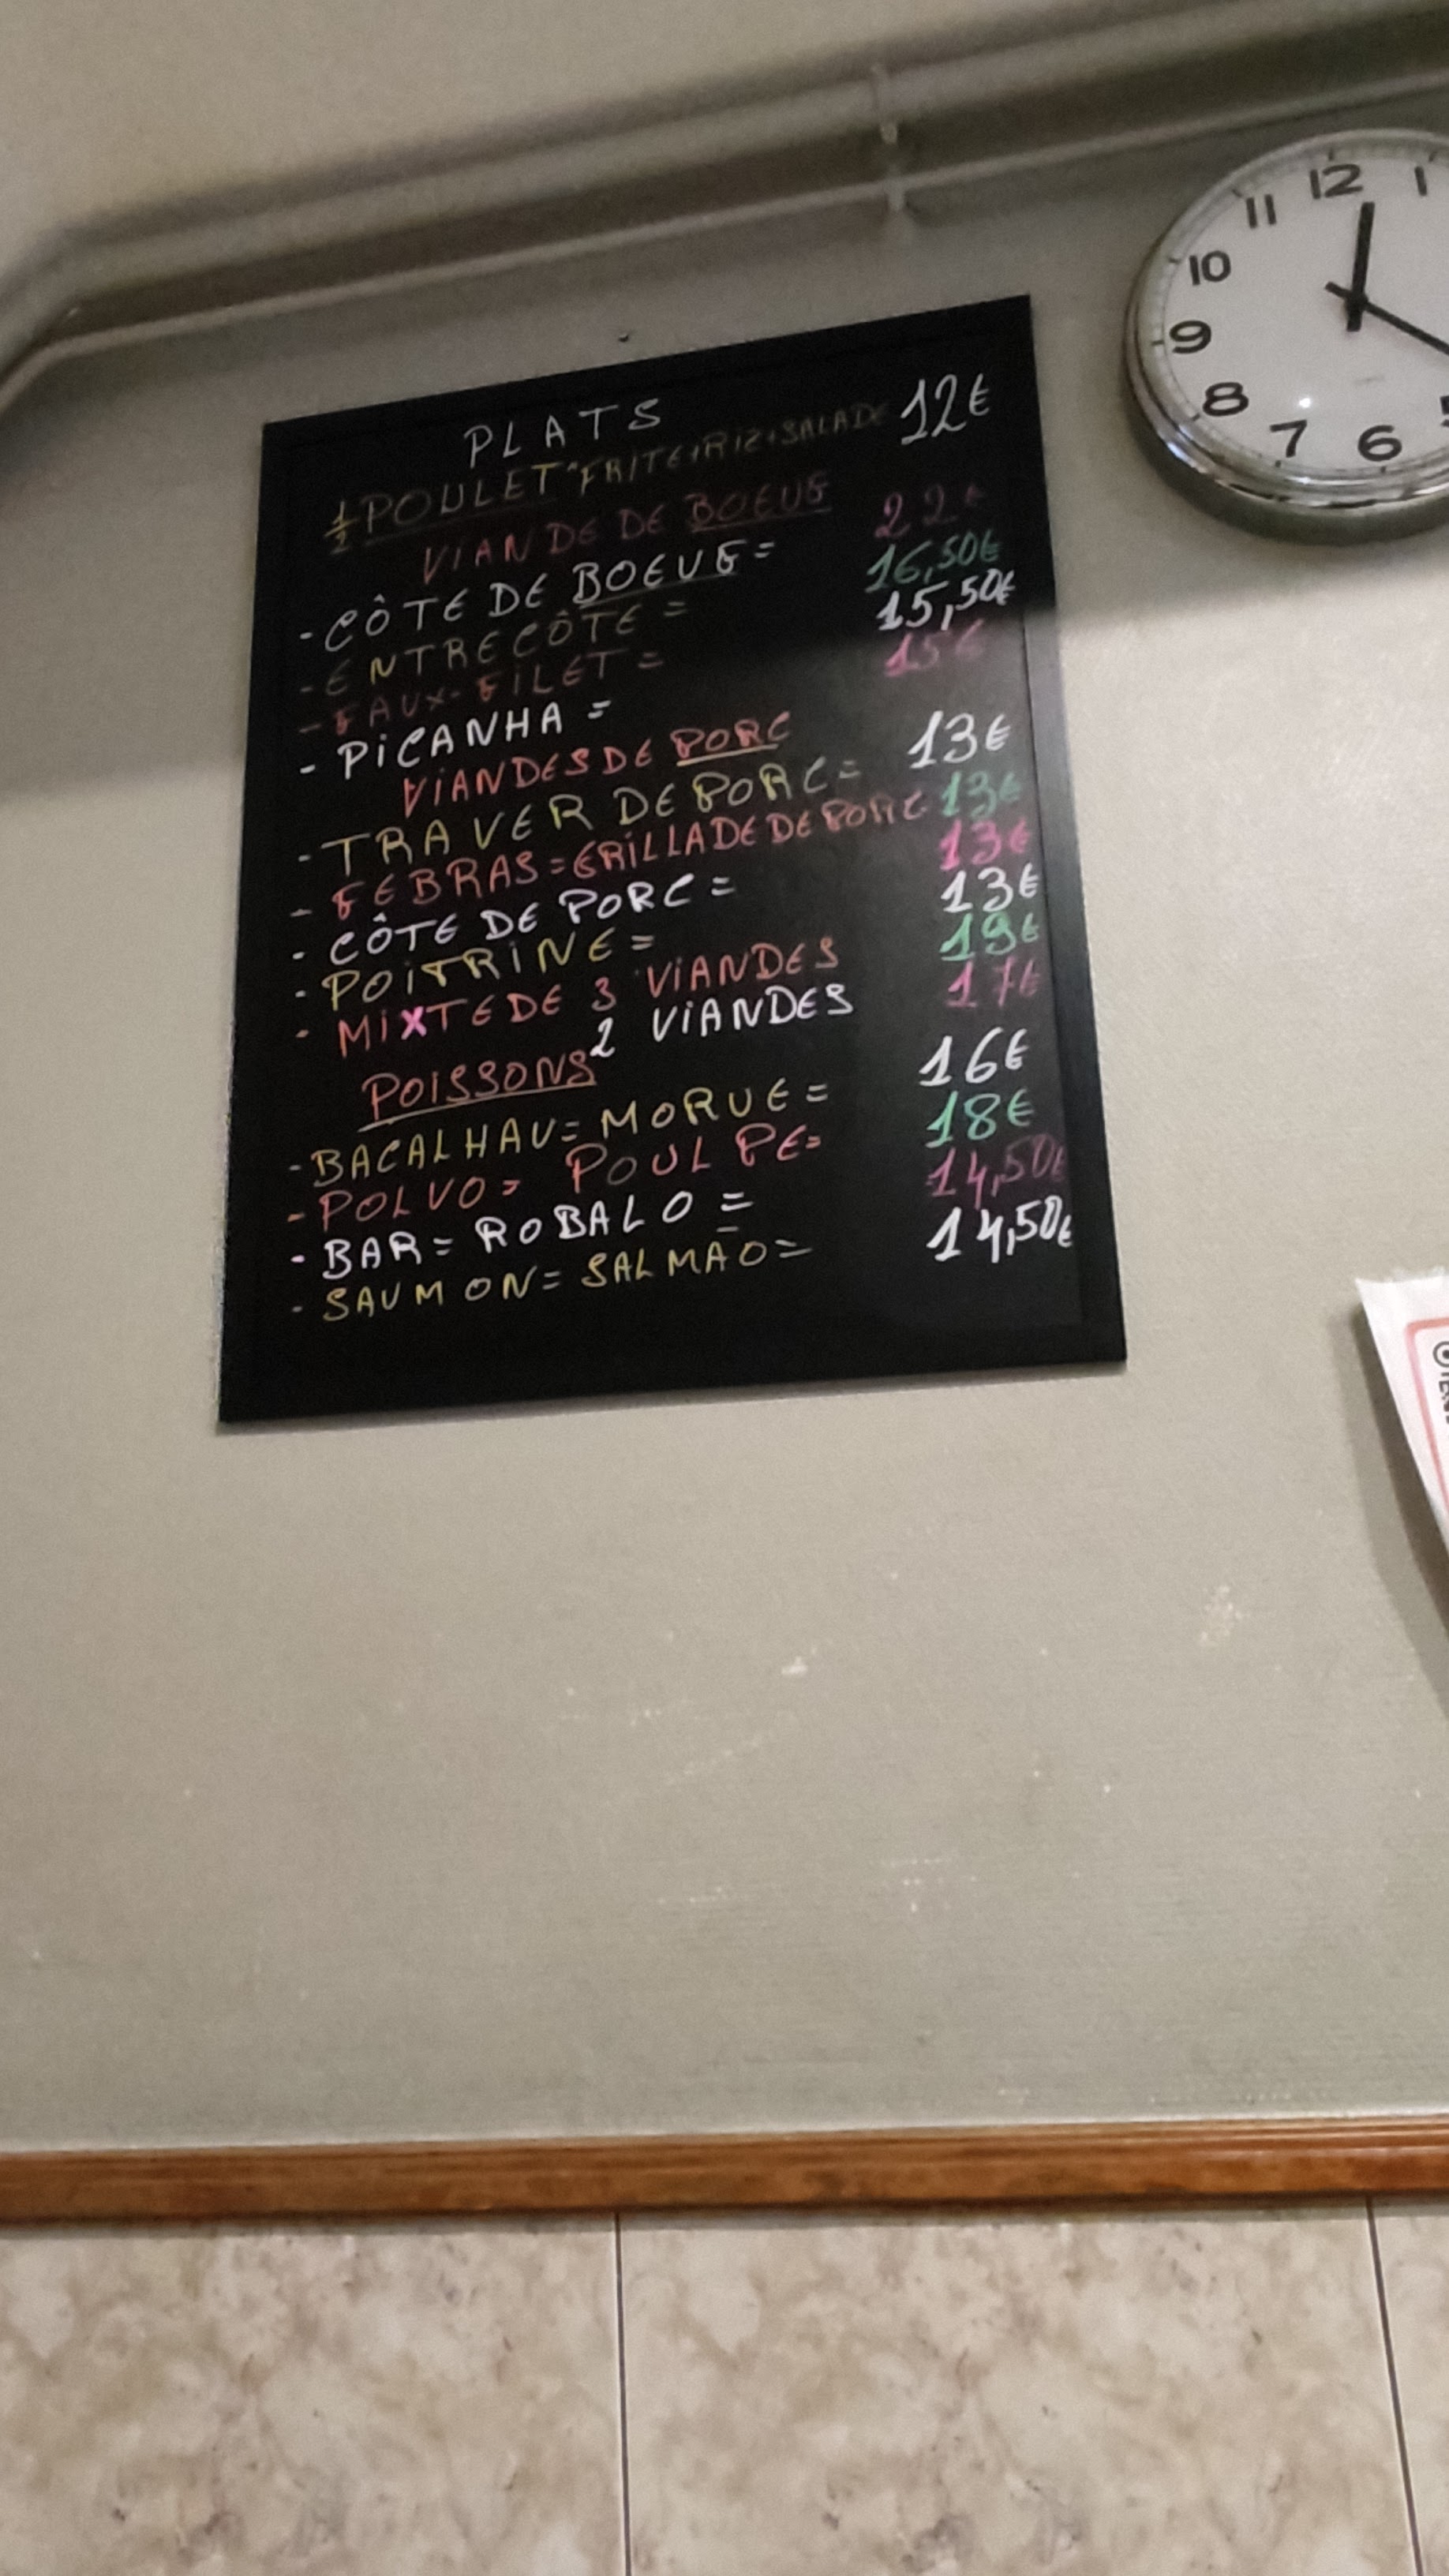 PLATS
½ POULET "FRITE+RIZ+SALADE 12€
VIANDE DE BOEUF
- CÔTE DE BOEUF = 22€
- ENTRECÔTE = 16,50€
- FAUX-FILET = 15,50€
- PiCANHA = 15€
ViANDES DE PORC
- TRAVER DE PORC = 13€
- FEBRAS = GRiLLADE DE PORC 13€
- CÔTE DE PORC = 13€
- POiTRiNE = 13€
- MiXTE DE 3 ViANDES 19€
2 ViANDES 17€
POiSSONS
- BACALHAU = MORUE = 16€
- POLVO = POULPE = 18€
- BAR = ROBALO = 14,50€
- SAUMON = SALMÃO = 14,50€
12 1
11
10
9
8
7 6